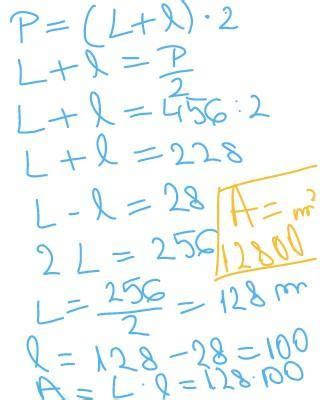 P = (L + l) · 2
L + l = P/2
L + l = 456 : 2
L + l = 228
L - l = 28
2 L = 256
L = 256/2 = 128 m
l = 128 - 28 = 100
A = L · l = 128 · 100
A = m²
12800